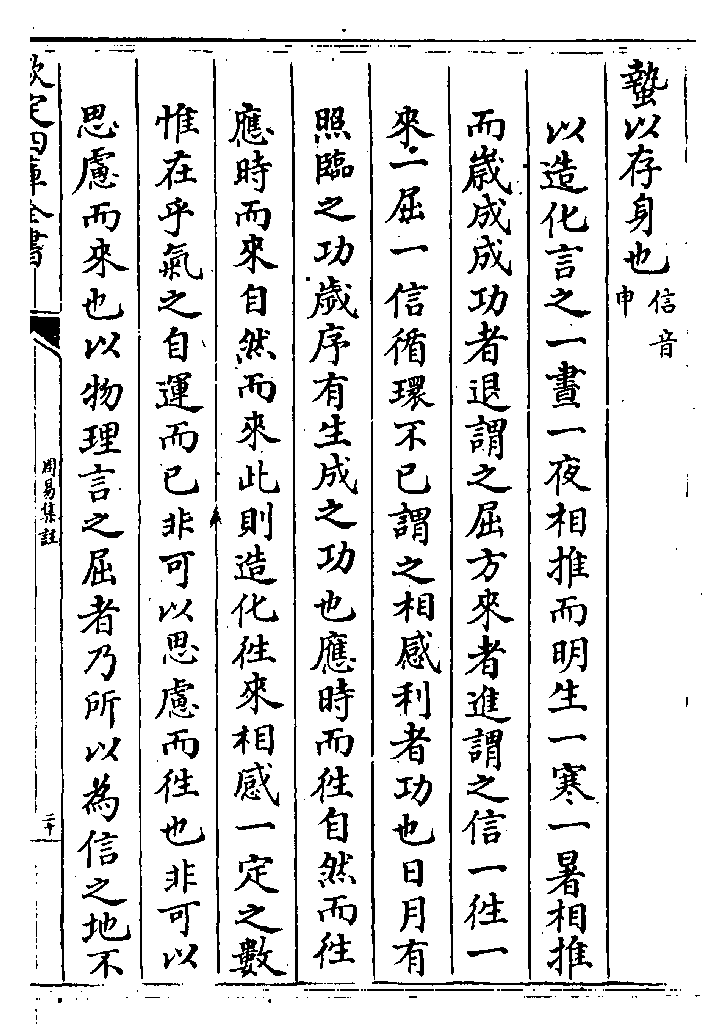 蟄以存身也信音申
以造化言之一晝一夜相推而明生一寒一暑相推
而嵗成成功者退謂之屈方來者進謂之信一徃一
來一屈一信循環不已謂之相感利者功也日月有
照臨之功歲序有生成之功也應時而徃自然而徃
應時而來自然而來此則造化徃來相感一定之數
惟在乎氣之自運而已非可以思慮而徃也非可以
思慮而來也以物理言之屈者乃所以為信之地不
欽定四庫全書
周易集註
二十